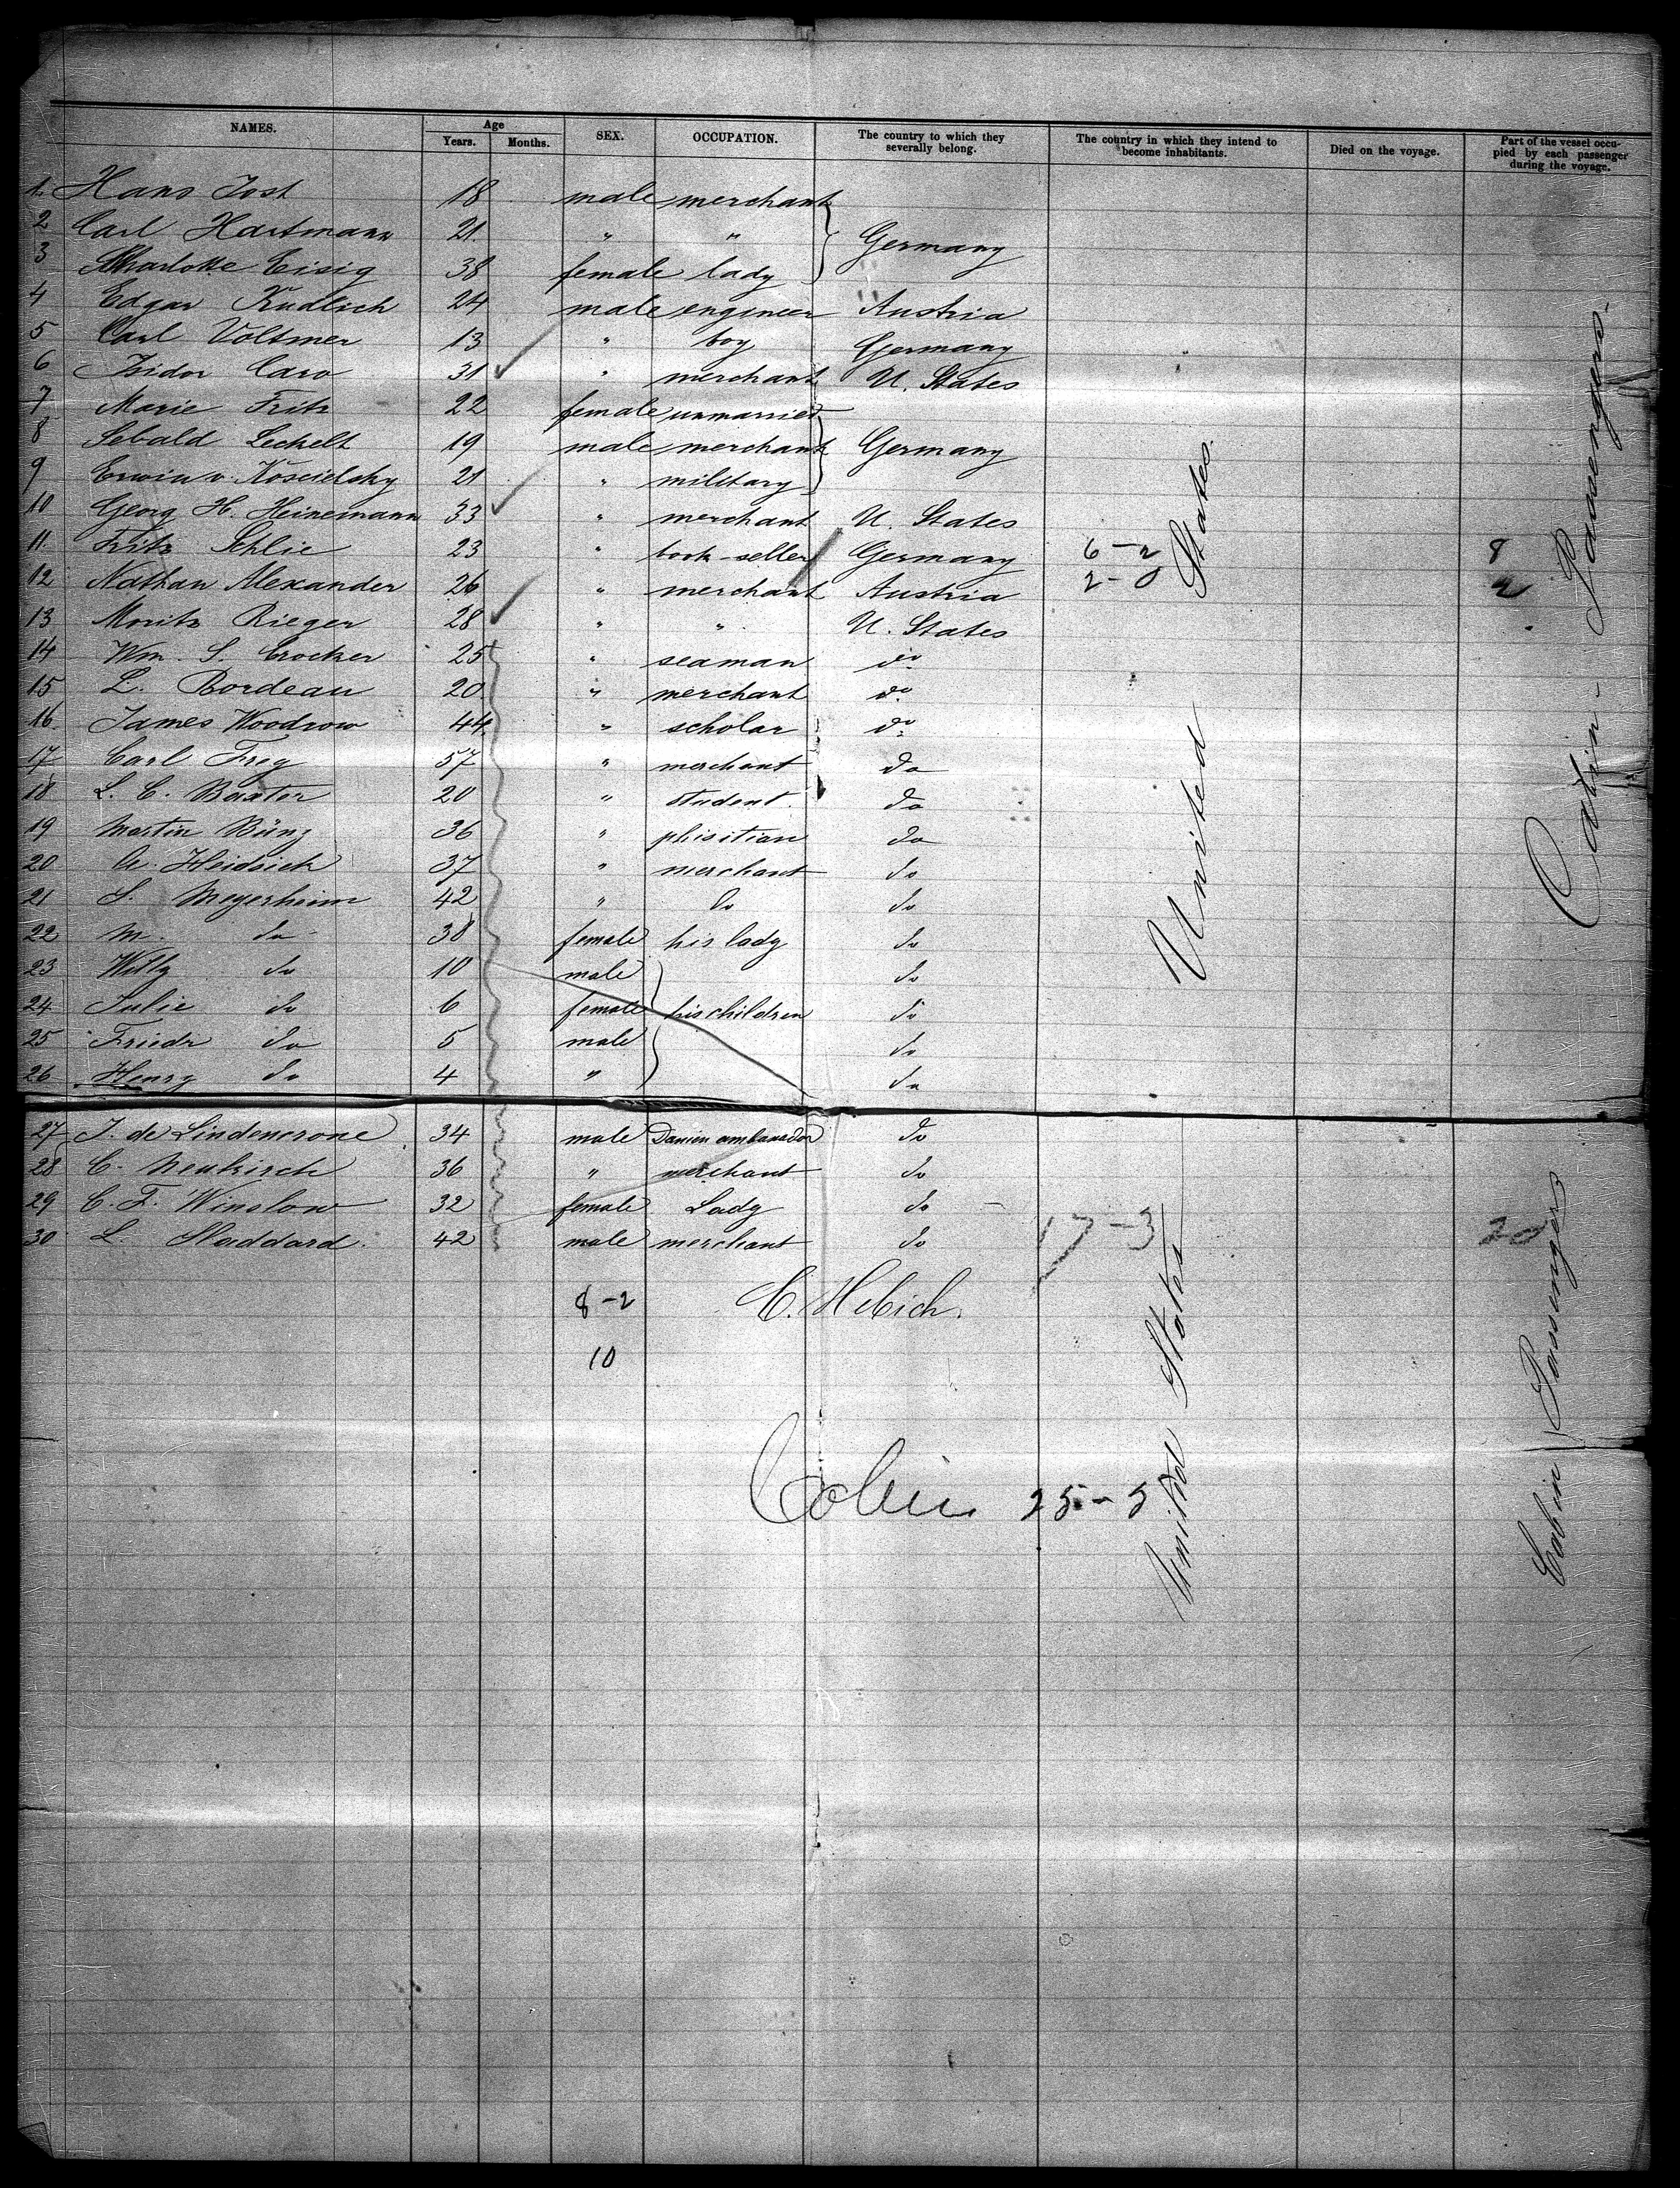 NAMES. Age SEX. OCCUPATION. The country to which they severally belong. The country in which they intend to become inhabitants. Died on the voyage. Part of the vessel occupied by each passenger during the voyage.
Years. Months.
1. Hans Jost 18 male merchant
2 Carl Hartmann 21 " " } Germany
3 Charlotte Eisig 38 female lady
4 Edgar Kudlich 24 male engineer Austria
5 Carl Voltmer 13 " boy Germany
6 Isidor Caro 31 " merchant U. States
7 Marie Fritz 22 female unmarried
8 Sebald Lechelt 19 male merchant } Germany
9 Erwin v. Koscielsky 21 " military
10 Georg H. Heinemann 33 " merchant U. States
11. Fritz Schlie 23 " book-seller Germany 6-2 8
12 Nathan Alexander 26 " merchant Austria 2-0 2
13 Moritz Rieger 28 " " U. States
14 Wm. S. Crocker 25 " seaman do
15 L. Bordeau 20 " merchant do
16. James Woodrow 44 " scholar do
17 Carl Frey 57 " merchant do
18 L. C. Baxter 20 " student. do
19 Martin Büng 36 " phisitian do
20 A. Heidsich 37 " merchant do
21 S. Meyerheim 42 " do do
22 M. do 38 female his lady do
23 Willy do 10 male do
24 Julie do 6 female } his children do
25 Friedr do 5 male do
26 Henry do 4 " do
27 J. de Lindencrone 34 male Danien ambassador do
28 C. Neukirch 36 " merchant do
29 C. F. Winslow 32 female Lady do
30 L. Stoddard. 42 male merchant do 17-3 20
8-2 C. Hebich.
10
Cabin 25-5
United States
Cabin-Passengers-
United States
Cabin Passenger